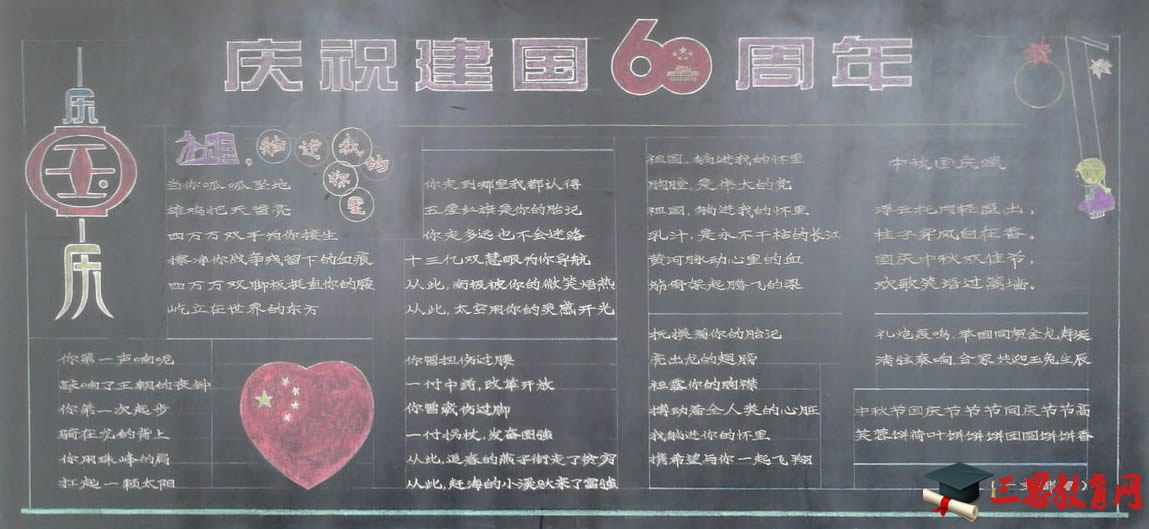 庆祝建国60周年
乐
国
庆
祖国,
躺进我的怀里
当你呱呱坠地
雄鸡把天啼亮
四万万双手为你接生
擦净你战争残留下的血痕
四万万双脚板挺直你的腰
屹立在世界的东方
你第一声呐喊
敲响了王朝的丧钟
你第一次起步
骑在龙的背上
你用珠峰的肩
扛起一颗太阳
你走到哪里我都认得
五星红旗是你的胎记
你走多远也不会迷路
十三亿双慧眼为你导航
从此,南极被你的微笑焐热
从此,太空用你的灵感开光
你曾扭伤过腰
一付中药,改革开放
你曾崴伤过脚
一付拐杖,发奋图强
从此,迎春的燕子衔走了贫穷
从此,赶海的小溪驮来了富强
祖国,躺进我的怀里
胸膛,是伟大的党
祖国,躺进我的怀里
乳汁,是永不干枯的长江
黄河脉动心里的血
架起腾飞的梁
抚摸着你的胎记
亮出龙的翅膀
袒露你的胸襟
搏动着全人类的心脏
我躺进你的怀里
携希望与你一起飞翔
中秋国庆
浮云托月轻盈出,
桂子穿风自在香。
国庆中秋双佳节,
欢歌笑语过篱墙。
礼炮轰鸣,举国同贺金龙寿诞
满弦奏响,合家共迎玉兔生辰
中秋节国庆节节节同庆节节高
芙蓉饼荷叶饼饼饼团圆饼饼香
三思教育网